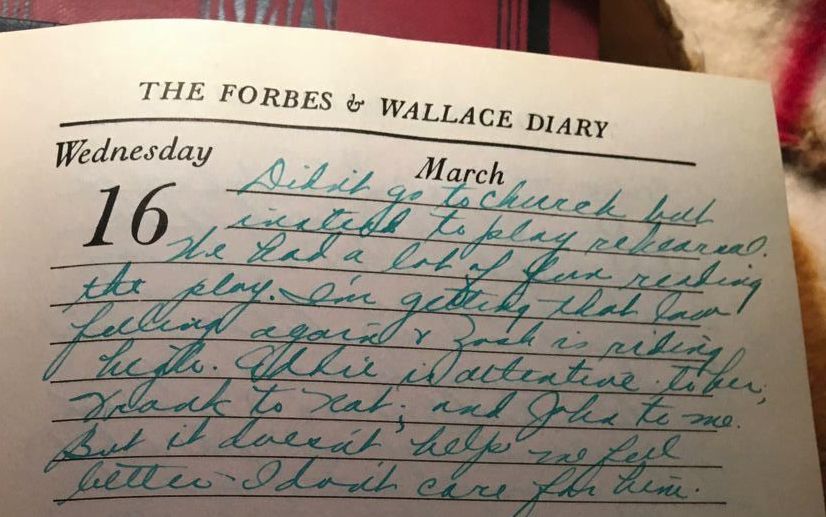 THE FORBES & WALLACE DIARY
Wednesday
March
16
Didn't go to church but
instead to play rehearsal.
We had a lot of fun reading
the play. I'm getting that low
feeling again & Zosh is riding
high. Eddie is attentive to her,
Frank to Nat; and John to me.
But it doesn't help me feel
better - I don't care for him.